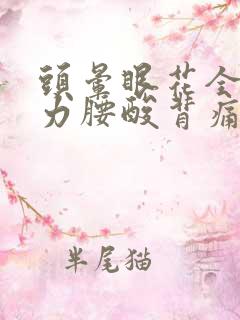 頭暈眼花全
力腰酸背痛
半尾猫